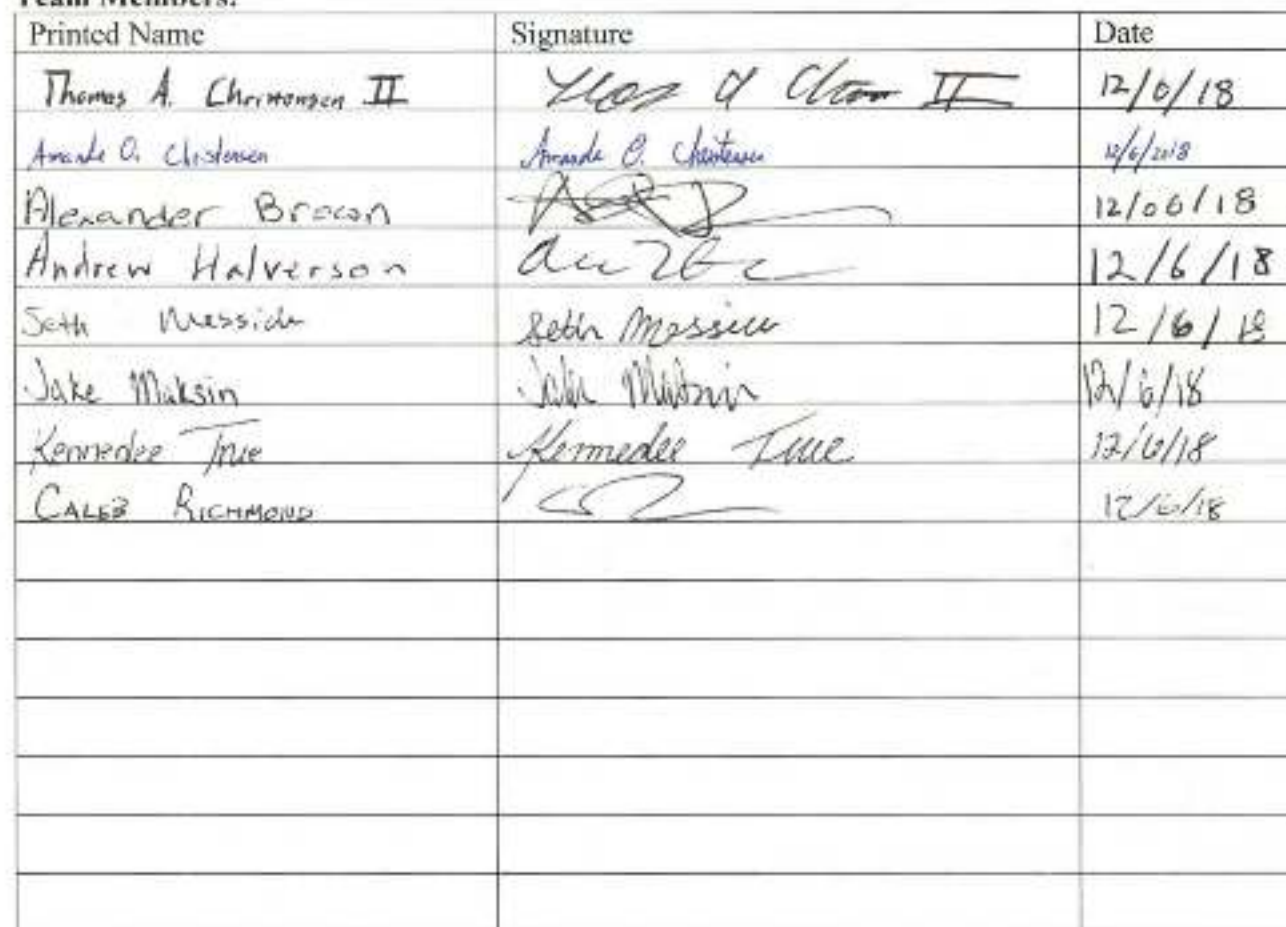 Team Members:
Printed Name Signature Date
Thomas A. Christensen II II 12/6/18
Amanda O. Christensen Amanda O. Christensen 12/6/2018
Alexander Brown 12/06/18
Andrew Halverson 12/6/18
Seth Seth 12/6/18
Jake Maksin Jake Maksin 12/6/18
Kennedee True Kennedee True 12/6/18
CALEB RICHMOND 12/6/18